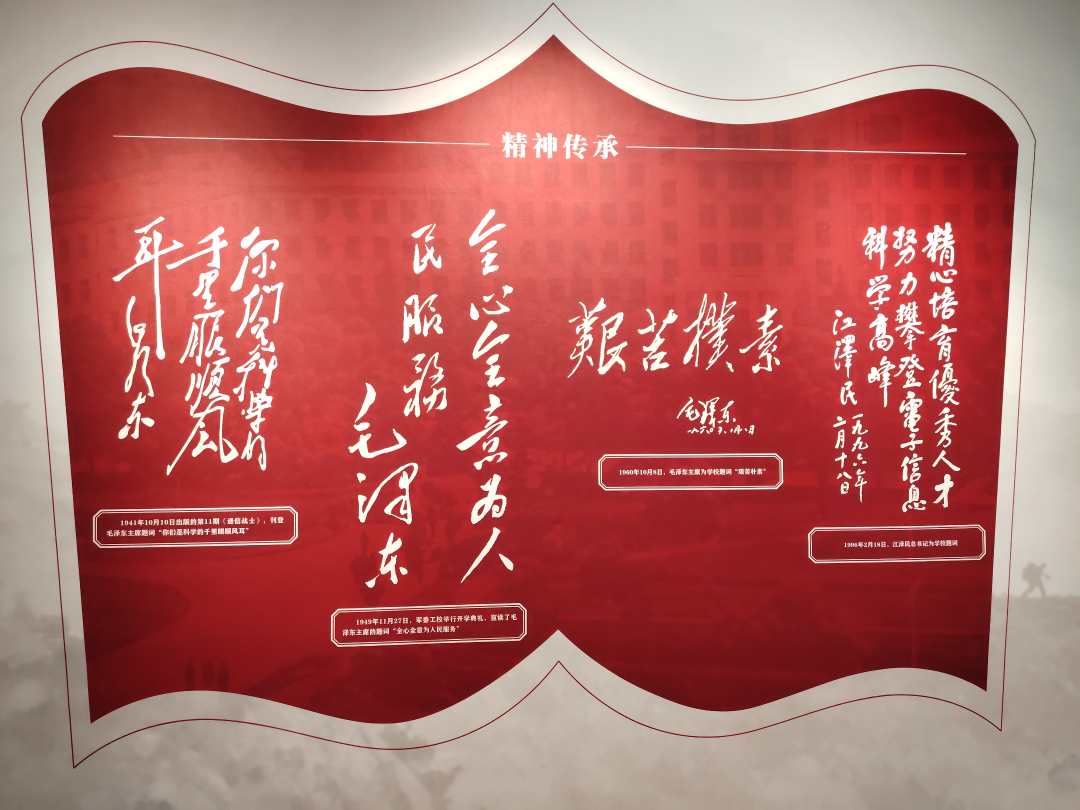 精神传承
你们是科学的
千里眼顺风
耳 毛泽东
1941年10月10日出版的第11期《通信战士》，刊登
毛泽东主席题词“你们是科学的千里眼顺风耳”
全心全意为人
民服務
毛泽东
1949年11月27日，军委工校举行开学典礼，宣读了毛
泽东主席的题词“全心全意为人民服务”
艱苦樸素
毛泽东
1960年10月8日，毛泽东主席为学校题词“艰苦朴素”
精心培育優秀人才
努力攀登電子信息
科学高峰
江澤民 一九九六年
二月十八日
1996年2月18日，江泽民总书记为学校题词